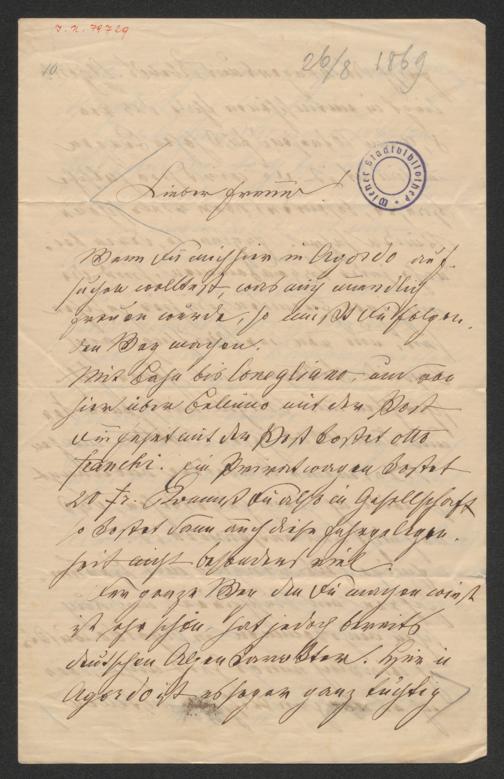 J. N. 79729
26/8 1869
10.
Wiener Stadtbibliothek
Lieber Freund!
Wenn Du mich hier in Agordo auf-
suchen wolltest, was mich unendlich
freuen würde, so mußt Du folgen-
den Weg machen.
Mit Bahn bis Conegliano, und von
hier über Belluno mit der Post
Die Fahrt mit der Post kostet otto
franchi. Ein Privatwagen kostet
20 Fr. Kommst Du also in Gesellschaft
so kostet dann auch diese Fahrgelegen-
heit nicht besonders viel.
Der ganze Weg den Du machen wirst
ist sehr schön, hat jedoch bereits
deutschen Alpen Karakter. Hier in
Agordo ist es sogar ganz tüchtig